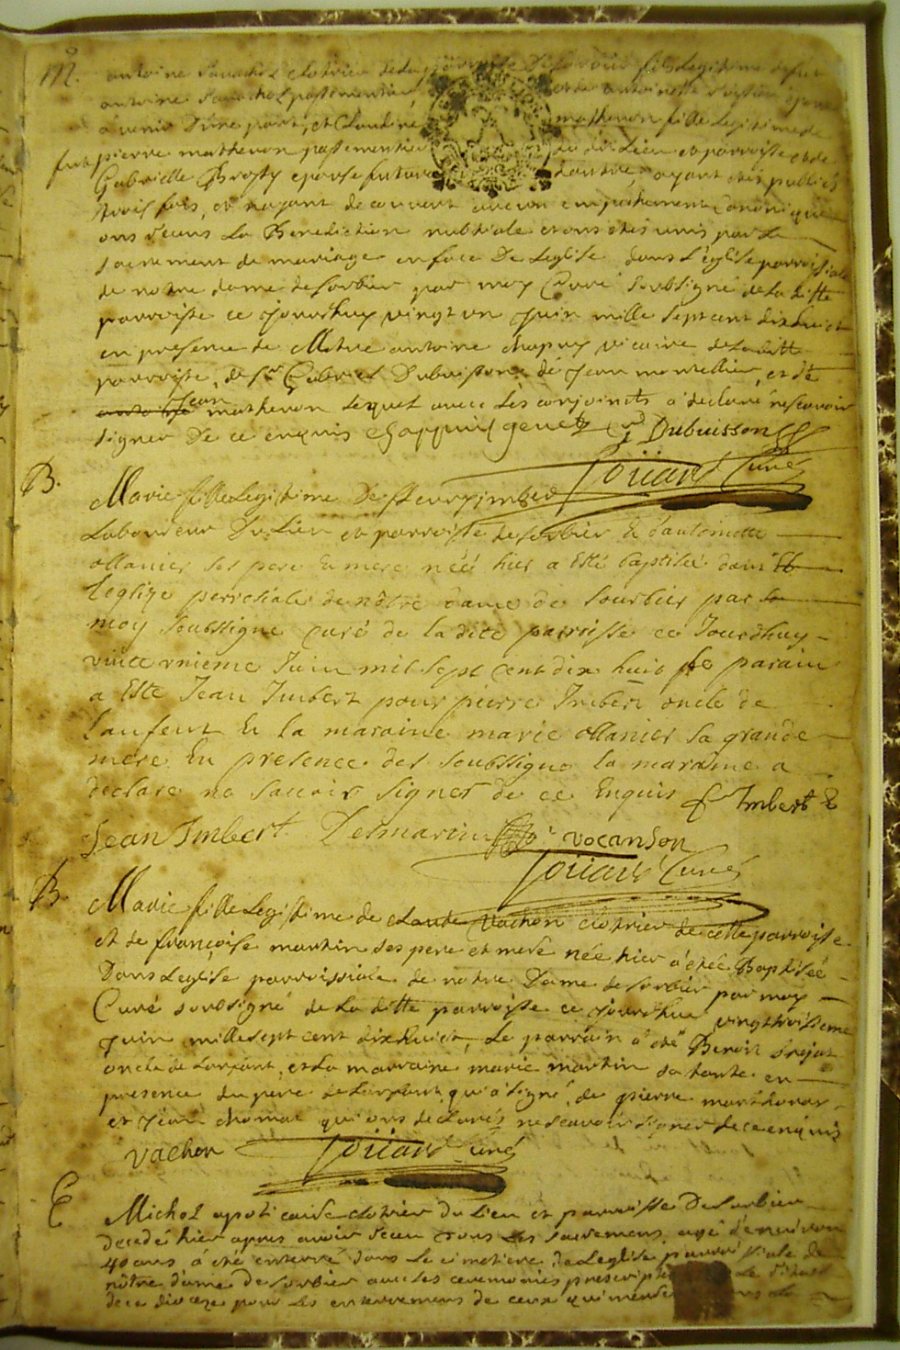 M.
antoine clotrier de la parroisse De Sorbier fils Legitime de feu
antoine passementier, et de antoinette
avenir Dune part, et Claudine matheuon fille Legitime de
fut pierre matheuon passementier du dit Lieu et parroisse et de
Gabrielle Brosty epouse future dautre, ayant etés publiés
trois fois, et nayant decouvert aucun empechement Canonique
ons receus La Benediction nubtiale et ons étés unis par Le
sacrement de mariage en face De Leglise dans L'église parroissiale
de notre dame de Sorbier par moy Curé Soubsigné de La ditte
parroisse ce jourdhuy vingt un juin mille sept cent dix huict
en presence de Metre antoine chapuy vicaire de Laditte
parroisse, de Sr Gabriel Dubuisson, de Jean montellier, et de
Jean matheuon Lequel avec Les conjoincts a declaré ne scavoir
signer De ce enquis Chappuy Dubuisson
Joüard Curé
B.
Marie fille Legitime De fleury imbert
Laboureur Du Lieu et parroisse de Sorbier & d'antoinette
ollanier ses pere & mere néé hier a Esté Baptisée dans
Leglize parrochiale de nôtre dame de Sourbier par
moy Soubssigné Curé de la dite parroisse ce Jourdhuy
vinct unieme Juin mil sept cent dix huit Le parain
a Esté Jean Imbert pour pierre Imbert oncle de
Lanfent & la maraine marie ollanier Sa grande
mere En presence des Soubssignés la maraine a
declaré ne Savoir signer de ce Enquis f Imbert
Jean Imbert Delmarin vocanson
Joüard Curé
B.
Marie fille Legitime de Claude Vachon Clotrier de cette parroisse
et de françoise martin ses pere et mere née hier a étéé Baptiséé
Dans Leglise parroissiale de notre Dame de Sorbier par moy
Curé soubsigné de La ditte parroisse ce jourdhui vingthoisieme
juin mille sept cent dix huict, Le parrain a été Benoit
oncle de Lanfant, et La marraine marie martin sa tante en
presence du pere de Lanfant qui a signé, de pierre
et Jean chomat qui ons declarés ne scavoir signer de ce enquis
Vachon Joüard Curé
E
Michel apoticaire Clotrier du Lieu et parroisse De Sorbier
decedé hier apres avoir receu Tous Les Sacremens, agé d'environ
40 ans a été enterré dans Le cimetiere de Leglise parroissiale de
nôtre dame de Sorbier avec Les ceremonies prescriptes Le rituel
de ce dioceze pour Les enterremens de ceux qui